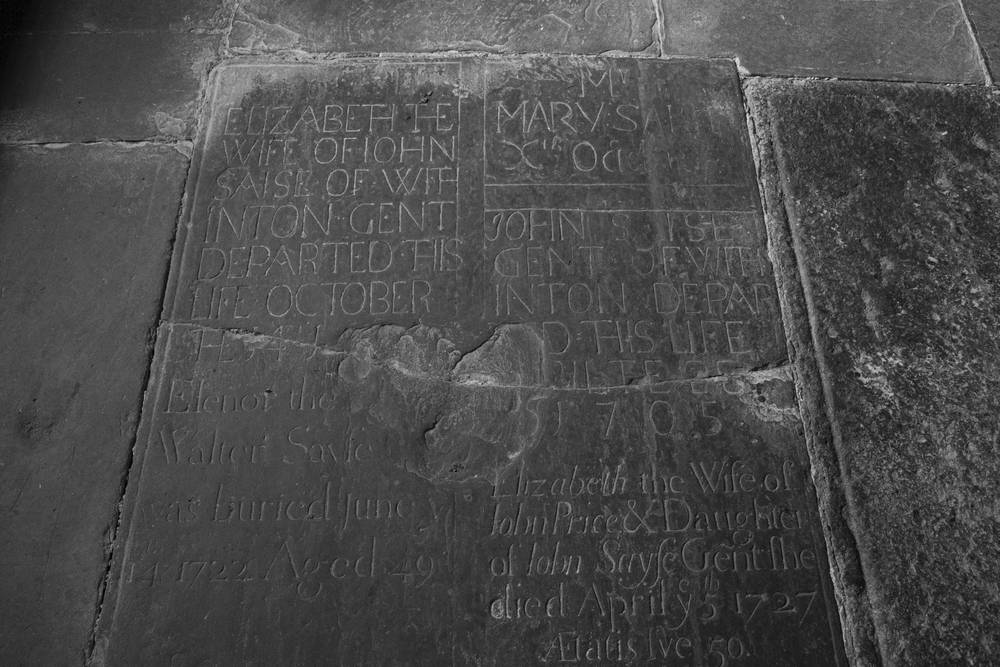 ELIZABETH HE
WIFE OF IOHN
SAISE OF WITH
INTON GENT
DEPARTED THIS
LIFE OCTOBER
Elenor the
Walter Sayse
was buried June y
14 1722 Aged 49
M
MARY S
Xth Oct
JOHN SAISE
GENT OF WITH
INTON DEPAR
D THIS LIFE
1705
Elizabeth the Wife of
Iohn Price & Daughter
of Iohn Sayſe Gent ſhe
died April ye 5th 1727
Ætatis ſve 50